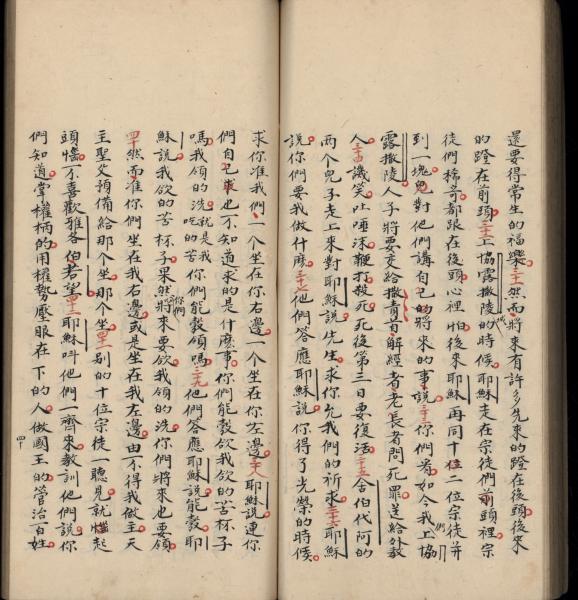 還要得常生的福樂三十一然而將來有許多先來的蹬在後頭後來
的蹬在前頭三十二上協露撒陵的時候耶穌走在宗徒們前頭裡宗
徒們稀奇都跟在後頭心裡怕後來耶穌再同十位二位宗徒并
到一塊兒對他們講自己的將來的事說三十三你們看如今我們上協
露撒陵人子將要交給撒責首解經者老長者問死罪送給外教
人三十四譏笑吐唾沫鞭打殺死死後第三日要復活三十五舍伯代阿的
兩个兒子走上來對耶穌說先生求你允我們的祈求三十六耶穌
說你們要我做什麼三十七他們答應耶穌說你得了光榮的時候
求你准我們一个坐在你右邊一个坐在你左邊三十八耶穌說連你
們自己求也不知道求的是什麼事你們能彀飲我飲的苦杯子
嗎我領的洗就是我吃的苦你們能彀領嗎三十九他們答應耶穌說能彀耶
穌說我飲的苦杯子果然你們將來要飲我領的洗你們將來也要領
四十然而准你們坐在我右邊或是坐在我左邊由不得我做主天
主聖父預備給那个坐那个坐四十一別的十位宗徒一聽見就惱起
頭惱不喜歡雅各伯若望四十二耶穌呌他們一齊來教訓他們說你
們知道掌權柄的用權勢壓眼在下的人做國王的管治百姓
四十